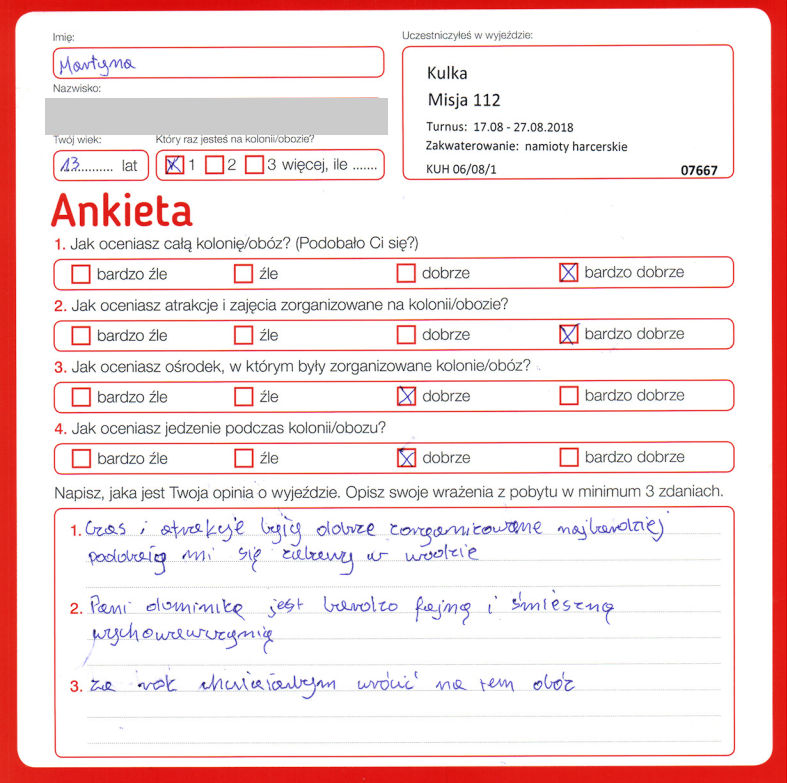 Imię:
Martyna
Nazwisko:
Twój wiek:
13 lat
Który raz jesteś na kolonii/obozie?
1 2 3 więcej, ile .......
Uczestniczyłeś w wyjeździe:
Kulka
Misja 112
Turnus: 17.08 - 27.08.2018
Zakwaterowanie: namioty harcerskie
KUH 06/08/1 07667
Ankieta
1. Jak oceniasz całą kolonię/obóz? (Podobało Ci się?)
bardzo źle źle dobrze bardzo dobrze
2. Jak oceniasz atrakcje i zajęcia zorganizowane na kolonii/obozie?
bardzo źle źle dobrze bardzo dobrze
3. Jak oceniasz ośrodek, w którym były zorganizowane kolonie/obóz?
bardzo źle źle dobrze bardzo dobrze
4. Jak oceniasz jedzenie podczas kolonii/obozu?
bardzo źle źle dobrze bardzo dobrze
Napisz, jaka jest Twoja opinia o wyjeździe. Opisz swoje wrażenia z pobytu w minimum 3 zdaniach.
1. Czas i atrakcje były dobrze zorganizowane najbardziej
podobają mi się zabawy w wodzie
2. Pani dominika jest bardzo fajną i śmieszną
wychowawczynią
3. za rok chciałabym wrócić na ten obóz